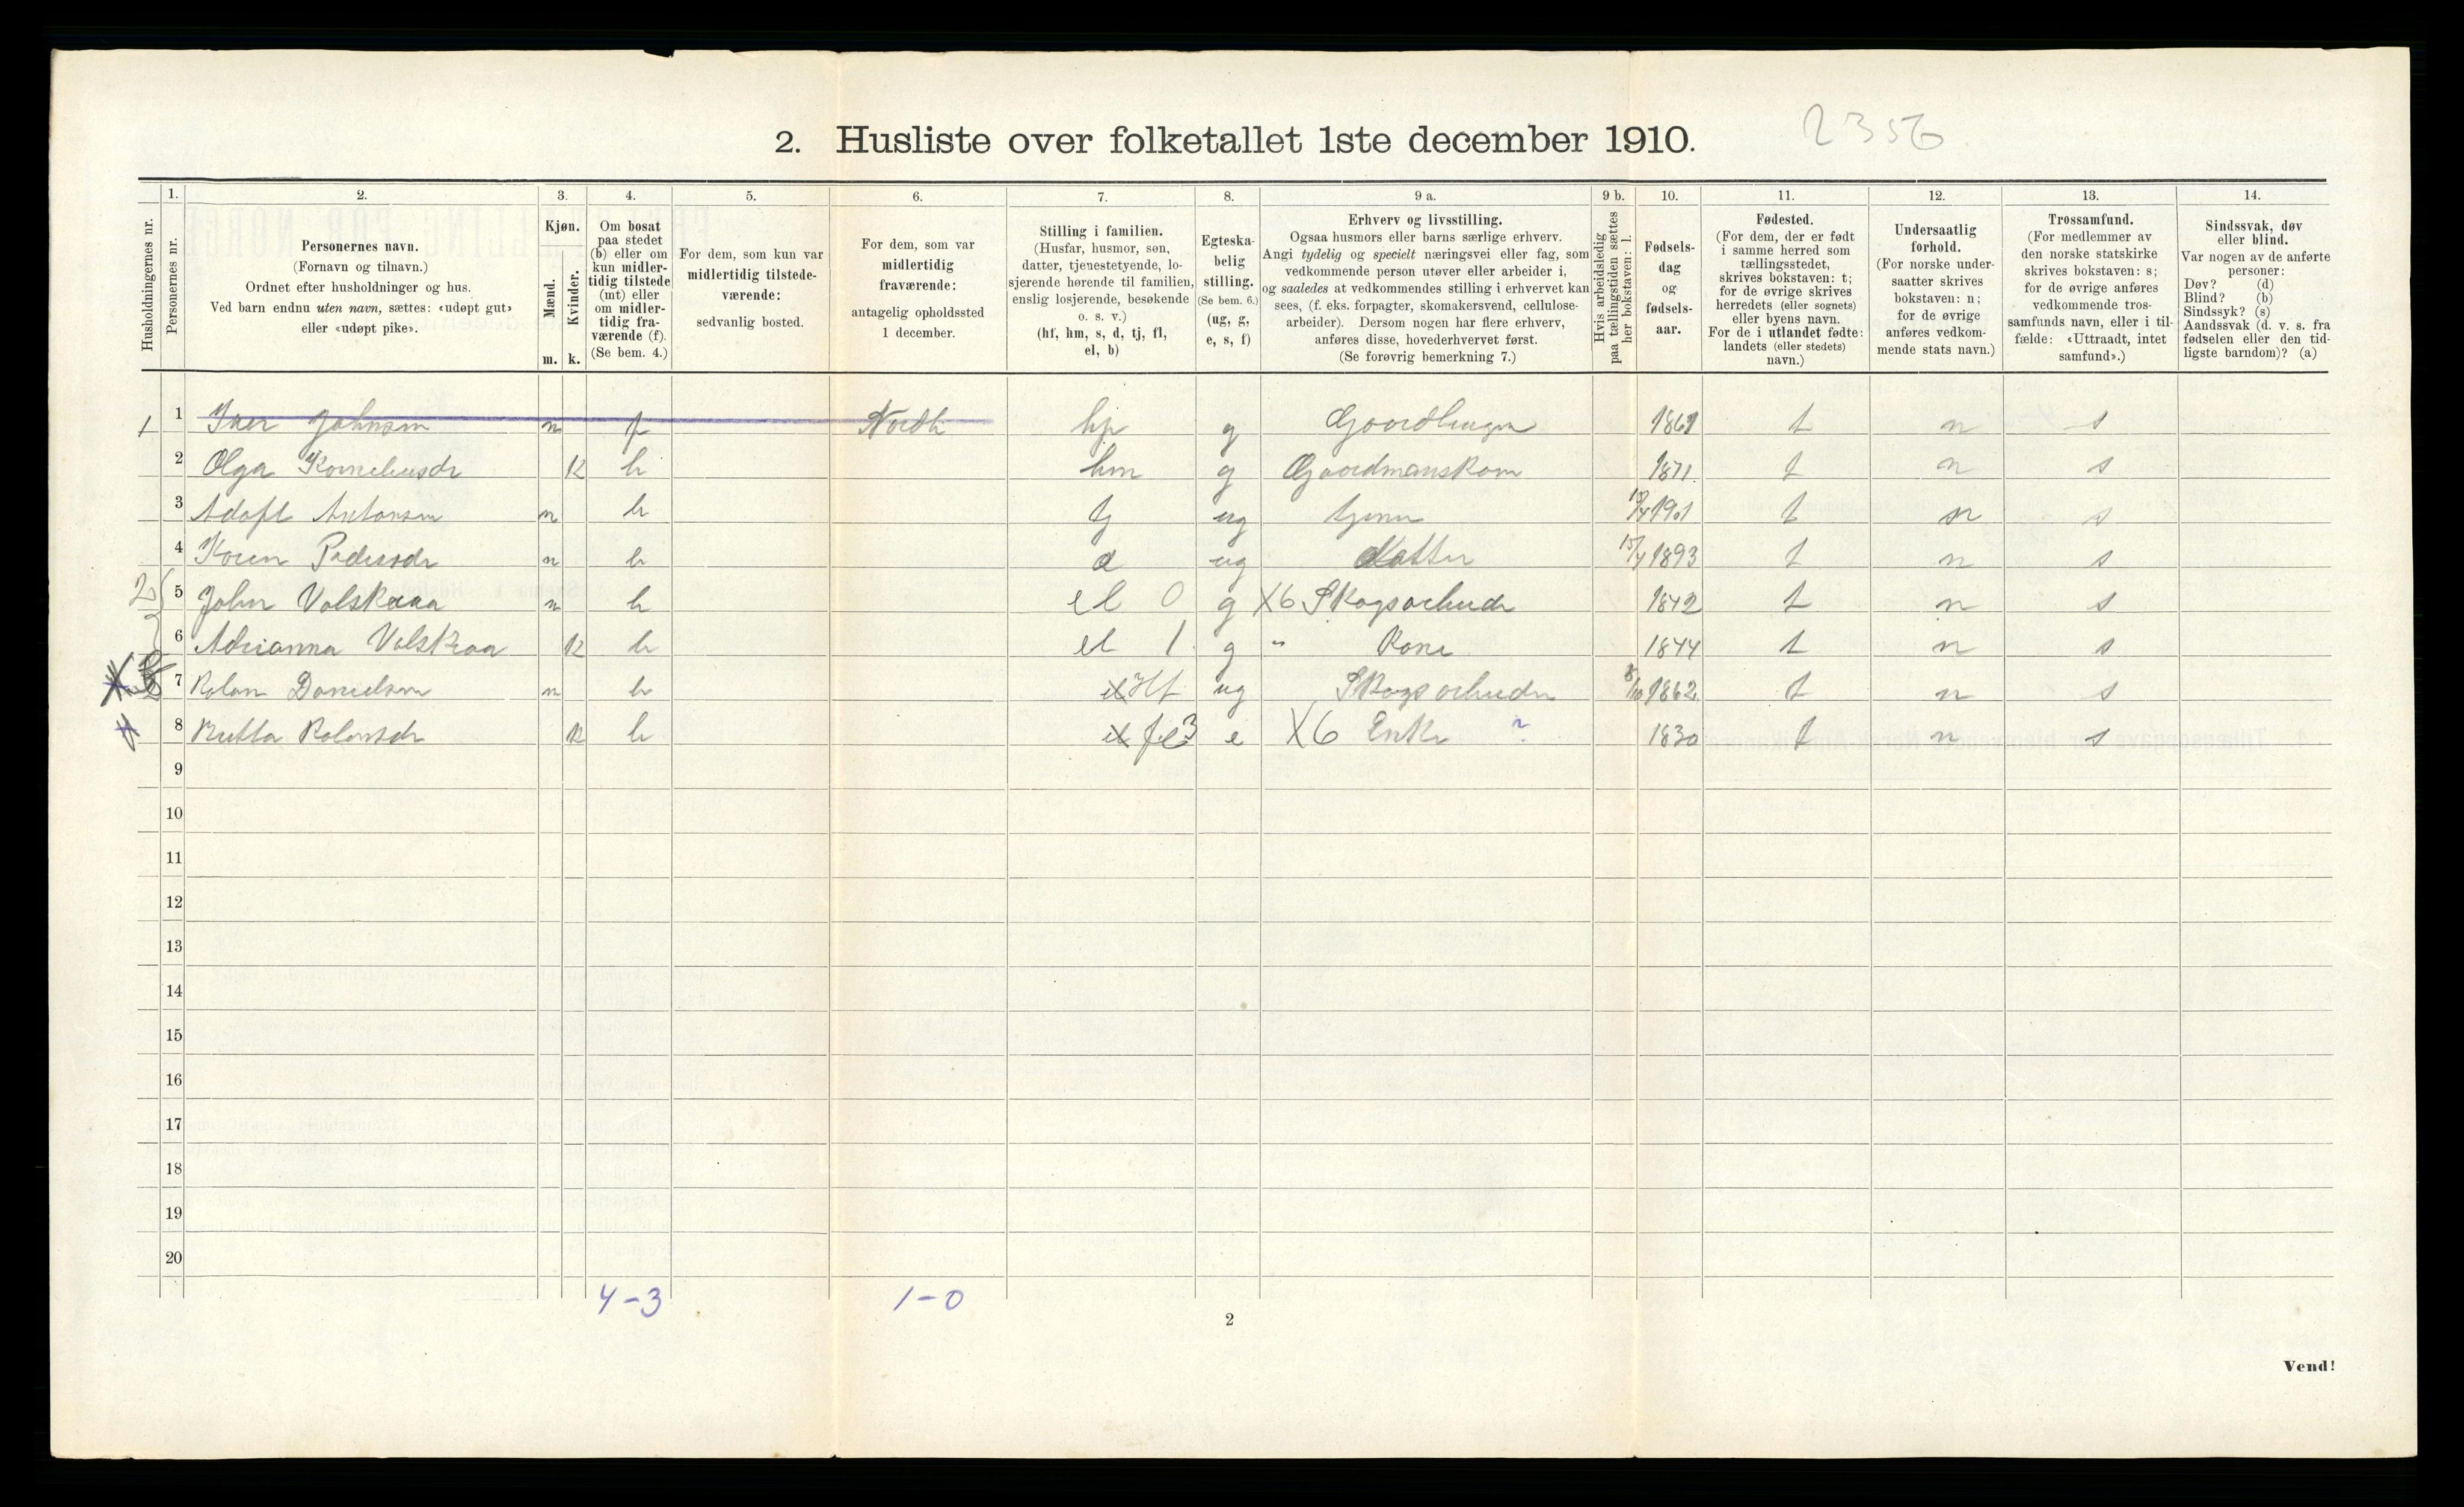 2356
2. Husliste over folketallet 1ste december 1910.
Husholdningernes nr.
1. Personernes nr.
2. Personernes navn.
(Fornavn og tilnavn.)
Ordnet efter husholdninger og hus.
Ved barn endnu uten navn, sættes: «udøpt gut»
eller «udøpt pike».
3. Kjøn.
Mænd. m.
Kvinder. k.
4. Om bosat
paa stedet
(b) eller om
kun midler-
tidig tilstede
(mt) eller
om midler-
tidig fra-
værende (f).
(Se bem. 4.)
5. For dem, som kun var
midlertidig tilstede-
værende:
sedvanlig bosted.
6. For dem, som var
midlertidig
fraværende:
antagelig opholdssted
1 december.
7. Stilling i familien.
(Husfar, husmor, søn,
datter, tjenestetyende, lo-
sjerende hørende til familien,
enslig losjerende, besøkende
o. s. v.)
(hf, hm, s, d, tj, fl,
el, b)
8. Egteska-
belig
stilling.
(Se bem. 6.)
(ug, g,
e, s, f)
9 a. Erhverv og livsstilling.
Ogsaa husmors eller barns særlige erhverv.
Angi tydelig og specielt næringsvei eller fag, som
vedkommende person utøver eller arbeider i,
og saaledes at vedkommendes stilling i erhvervet kan
sees, (f. eks. forpagter, skomakersvend, cellulose-
arbeider). Dersom nogen har flere erhverv,
anføres disse, hovederhvervet først.
(Se forøvrig bemerkning 7.)
9 b. Hvis arbeidsledig
paa tællingstiden sættes
her bokstaven: l.
10. Fødsels-
dag
og
fødsels-
aar.
11. Fødested.
(For dem, der er født
i samme herred som
tællingsstedet,
skrives bokstaven: t;
for de øvrige skrives
herredets (eller sognets)
eller byens navn.
For de i utlandet fødte:
landets (eller stedets)
navn.)
12. Undersaatlig
forhold.
(For norske under-
saatter skrives
bokstaven: n;
for de øvrige
anføres vedkom-
mende stats navn.)
13. Trossamfund.
(For medlemmer av
den norske statskirke
skrives bokstaven: s;
for de øvrige anføres
vedkommende tros-
samfunds navn, eller i til-
fælde: «Uttraadt, intet
samfund».)
14. Sindssvak, døv
eller blind.
Var nogen av de anførte
personer:
Døv? (d)
Blind? (b)
Sindssyk? (s)
Aandssvak (d. v. s. fra
fødselen eller den tid-
ligste barndom)? (a)
1 1 Iver Johnsen m f hf g 1861 t n s
2 Olga Korneliusdr k b hm g Gaardmanskone 1871. t n s
3 Adolf Antonsen m b tj ug 1901 t n s
4 Karen Pedersdr m b d ug datter 15/4 1893 t n s
2 5 John Valskraa m b el 0 g X6 Skogsarbeider 1842 t n s
6 Adrianna Valskraa k b el 1 g " Kone 1844 t n s
7 Rolan Danielsen m b el Hf ug Skogsarbeider 8/10 1862 t n s
8 Rolansdr k b el fl 3 e X6 Enke ? 1830 t n s
9
10
11
12
13
14
15
16
17
18
19
20
4-3 1-0
2
Vend!